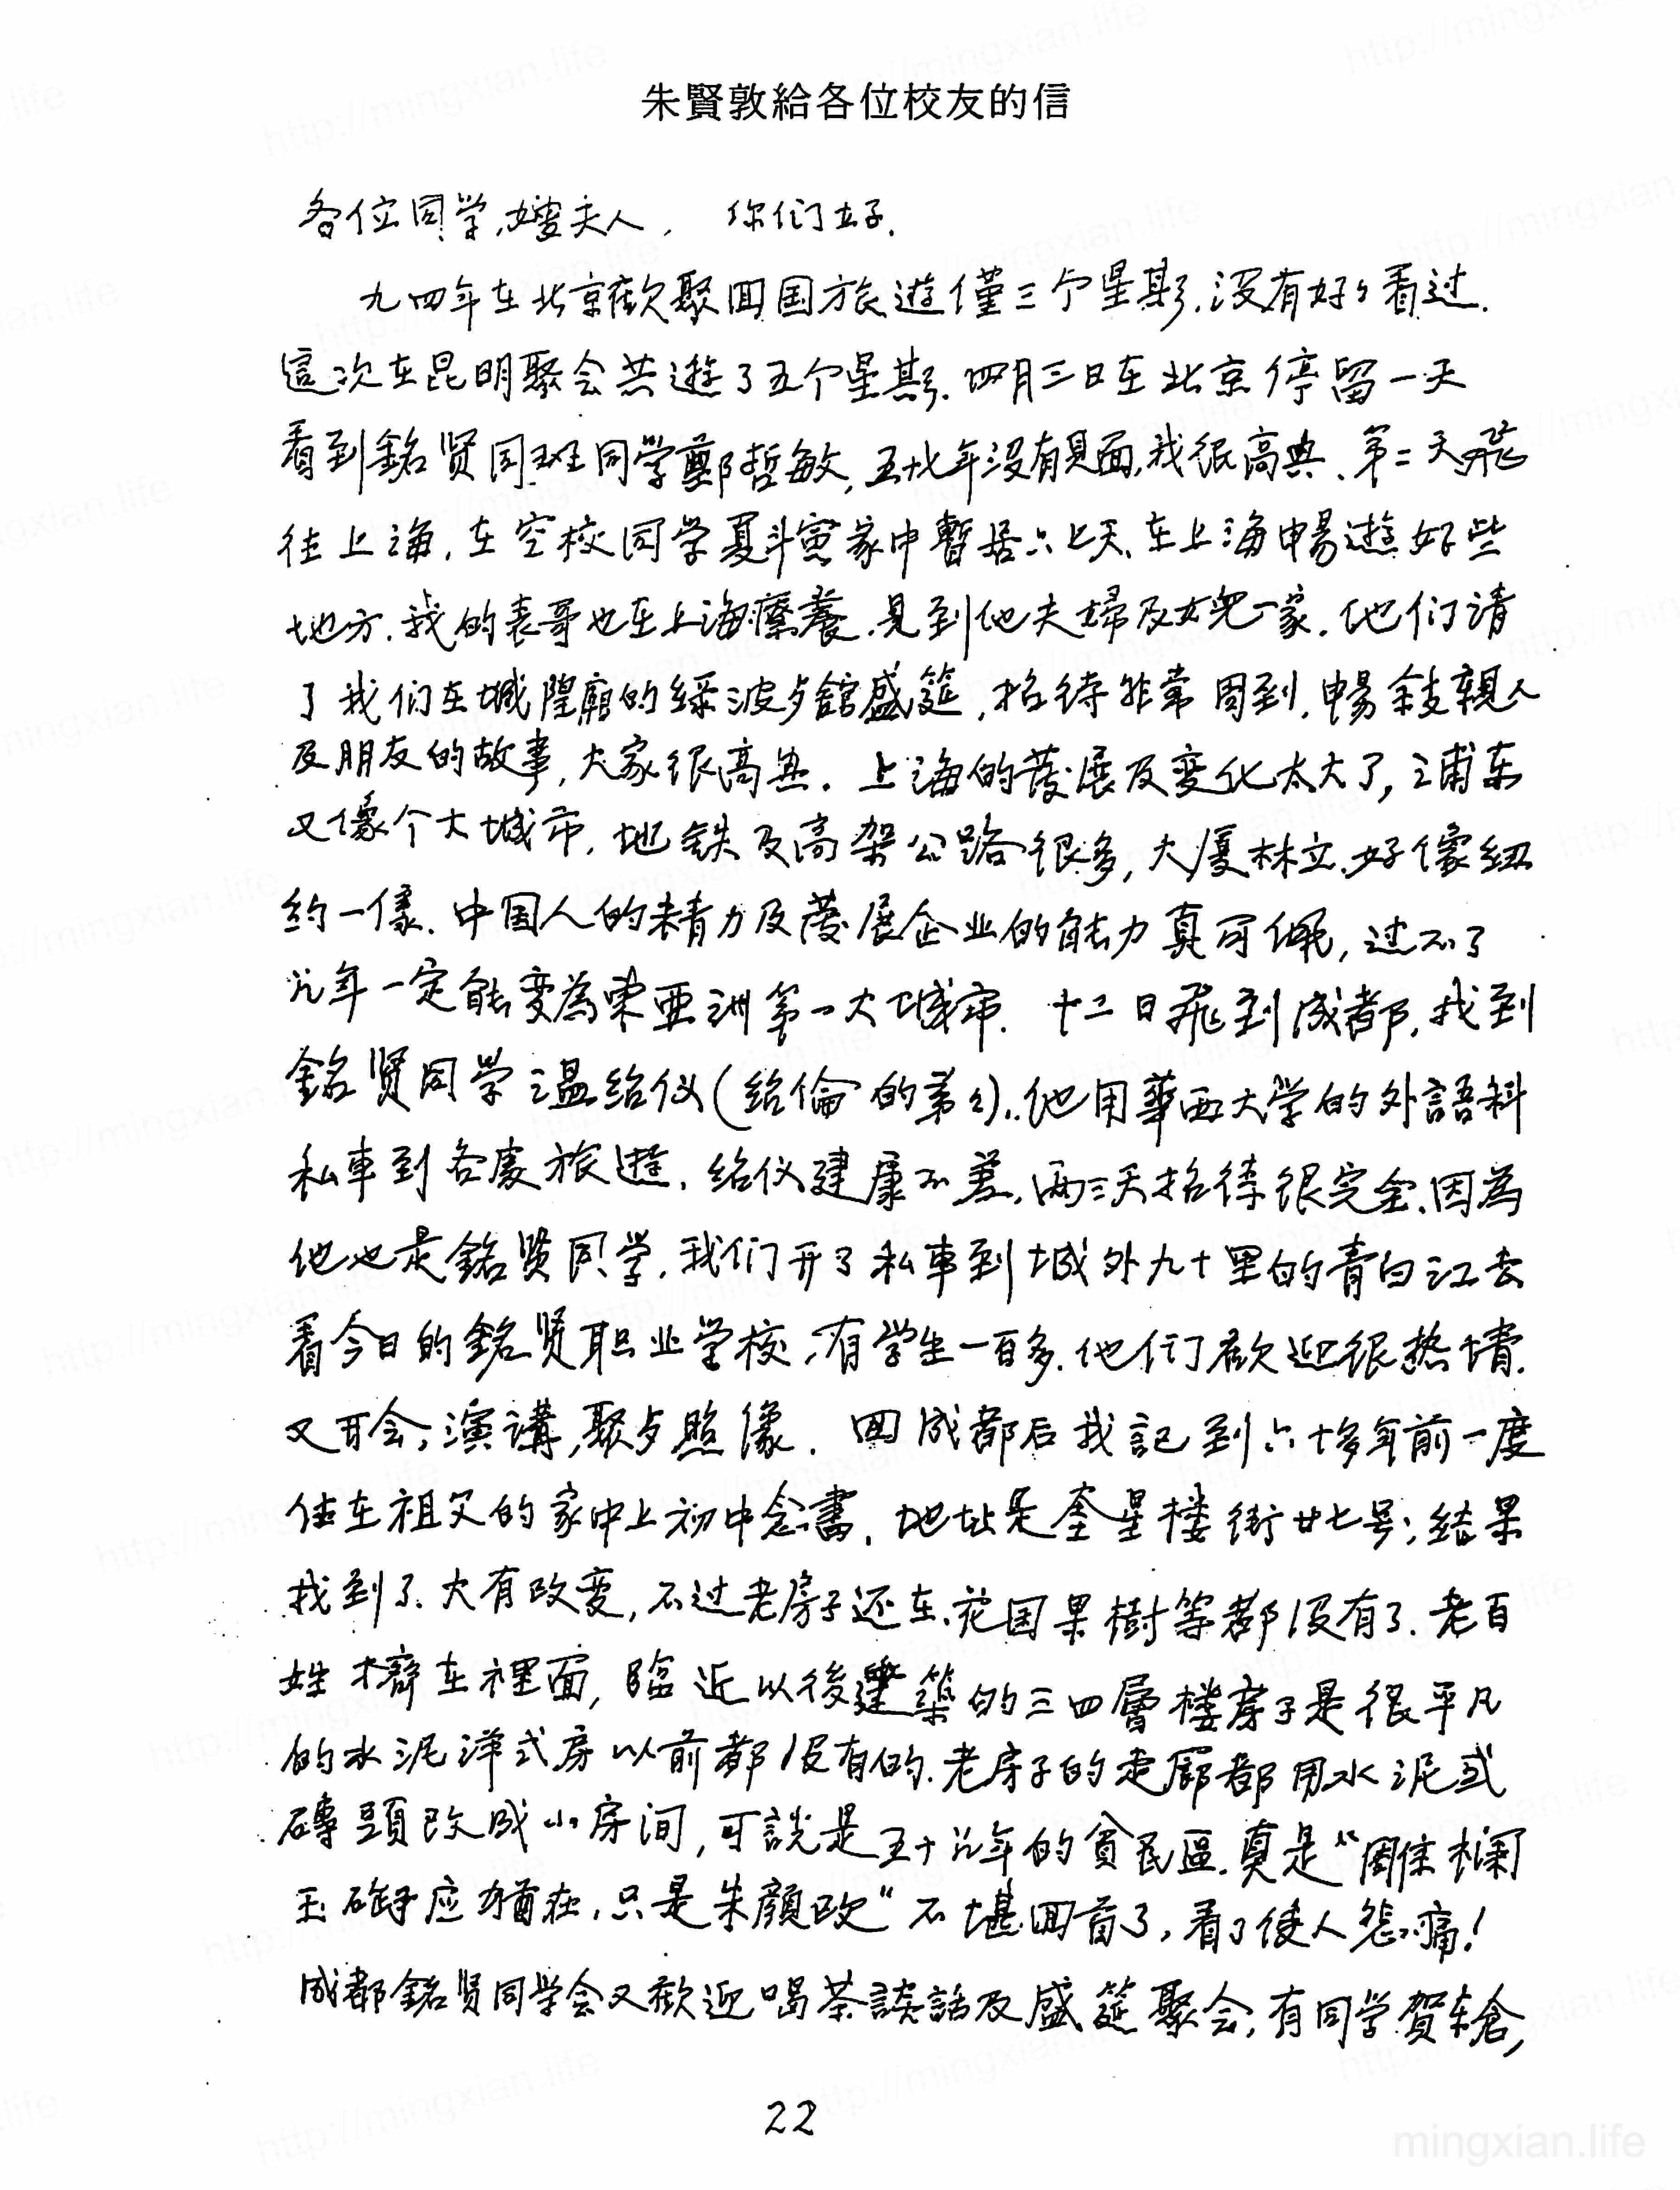 朱賢敦給各位校友的信
各位同学,嫂夫人, 你们好.
九四年在北京歡聚回国旅遊僅三个星期,没有好好看过.
這次在昆明聚会共遊了五个星期.四月三日在北京停留一天
看到銘贤同班同学鄭哲敏,五十七年没有見面,我很高興、第二天飛
往上海,在空校同学夏斗寅家中暫居六七天、在上海暢遊好些
地方.我的表哥也在上海療養.見到他夫婦及女兒一家.他们请
了我们在城隍廟的绿波歺館盛筵,招待非常周到,暢叙親人
及朋友的故事,大家很高興.上海的發展及变化太大了,浦东
又像个大城市,地铁及高架公路很多,大厦林立,好像纽
约一像.中国人的精力及發展企业的能力真可佩,过不了
几年一定能变為東亜洲第一大城市. 十二日飛到成都,找到
銘贤同学温绍仪(绍倫的弟弟).他用華西大学的外語科
私車到各處旅遊.绍仪建康不差,两三天招待很完全.因為
他也是銘贤同学.我们开了私車到城外九十里的青白江去
看今日的銘贤职业学校,有学生一百多.他们歡迎很热情.
又开会,演講,聚歺照像. 回成都后我記到六十多年前一度
住在祖父的家中上初中念書.地址是奎星楼街廿七号;结果
找到了.大有改变,不过老房子还在.花园果樹等都没有了.老百
姓擠在裡面,臨近以後建築的三四層楼房子是很平凡
的水泥洋式房以前都没有的.老房子的走廊都用水泥或
磚頭改成小房间,可説是五十几年的貧民區.真是"雕栏
玉砌应猶在,只是朱顔改"不堪回首了,看了使人悲痛!
成都銘贤同学会又歡迎喝茶談話及盛筵聚会,有同学賀东倉,
22
mingxian.life